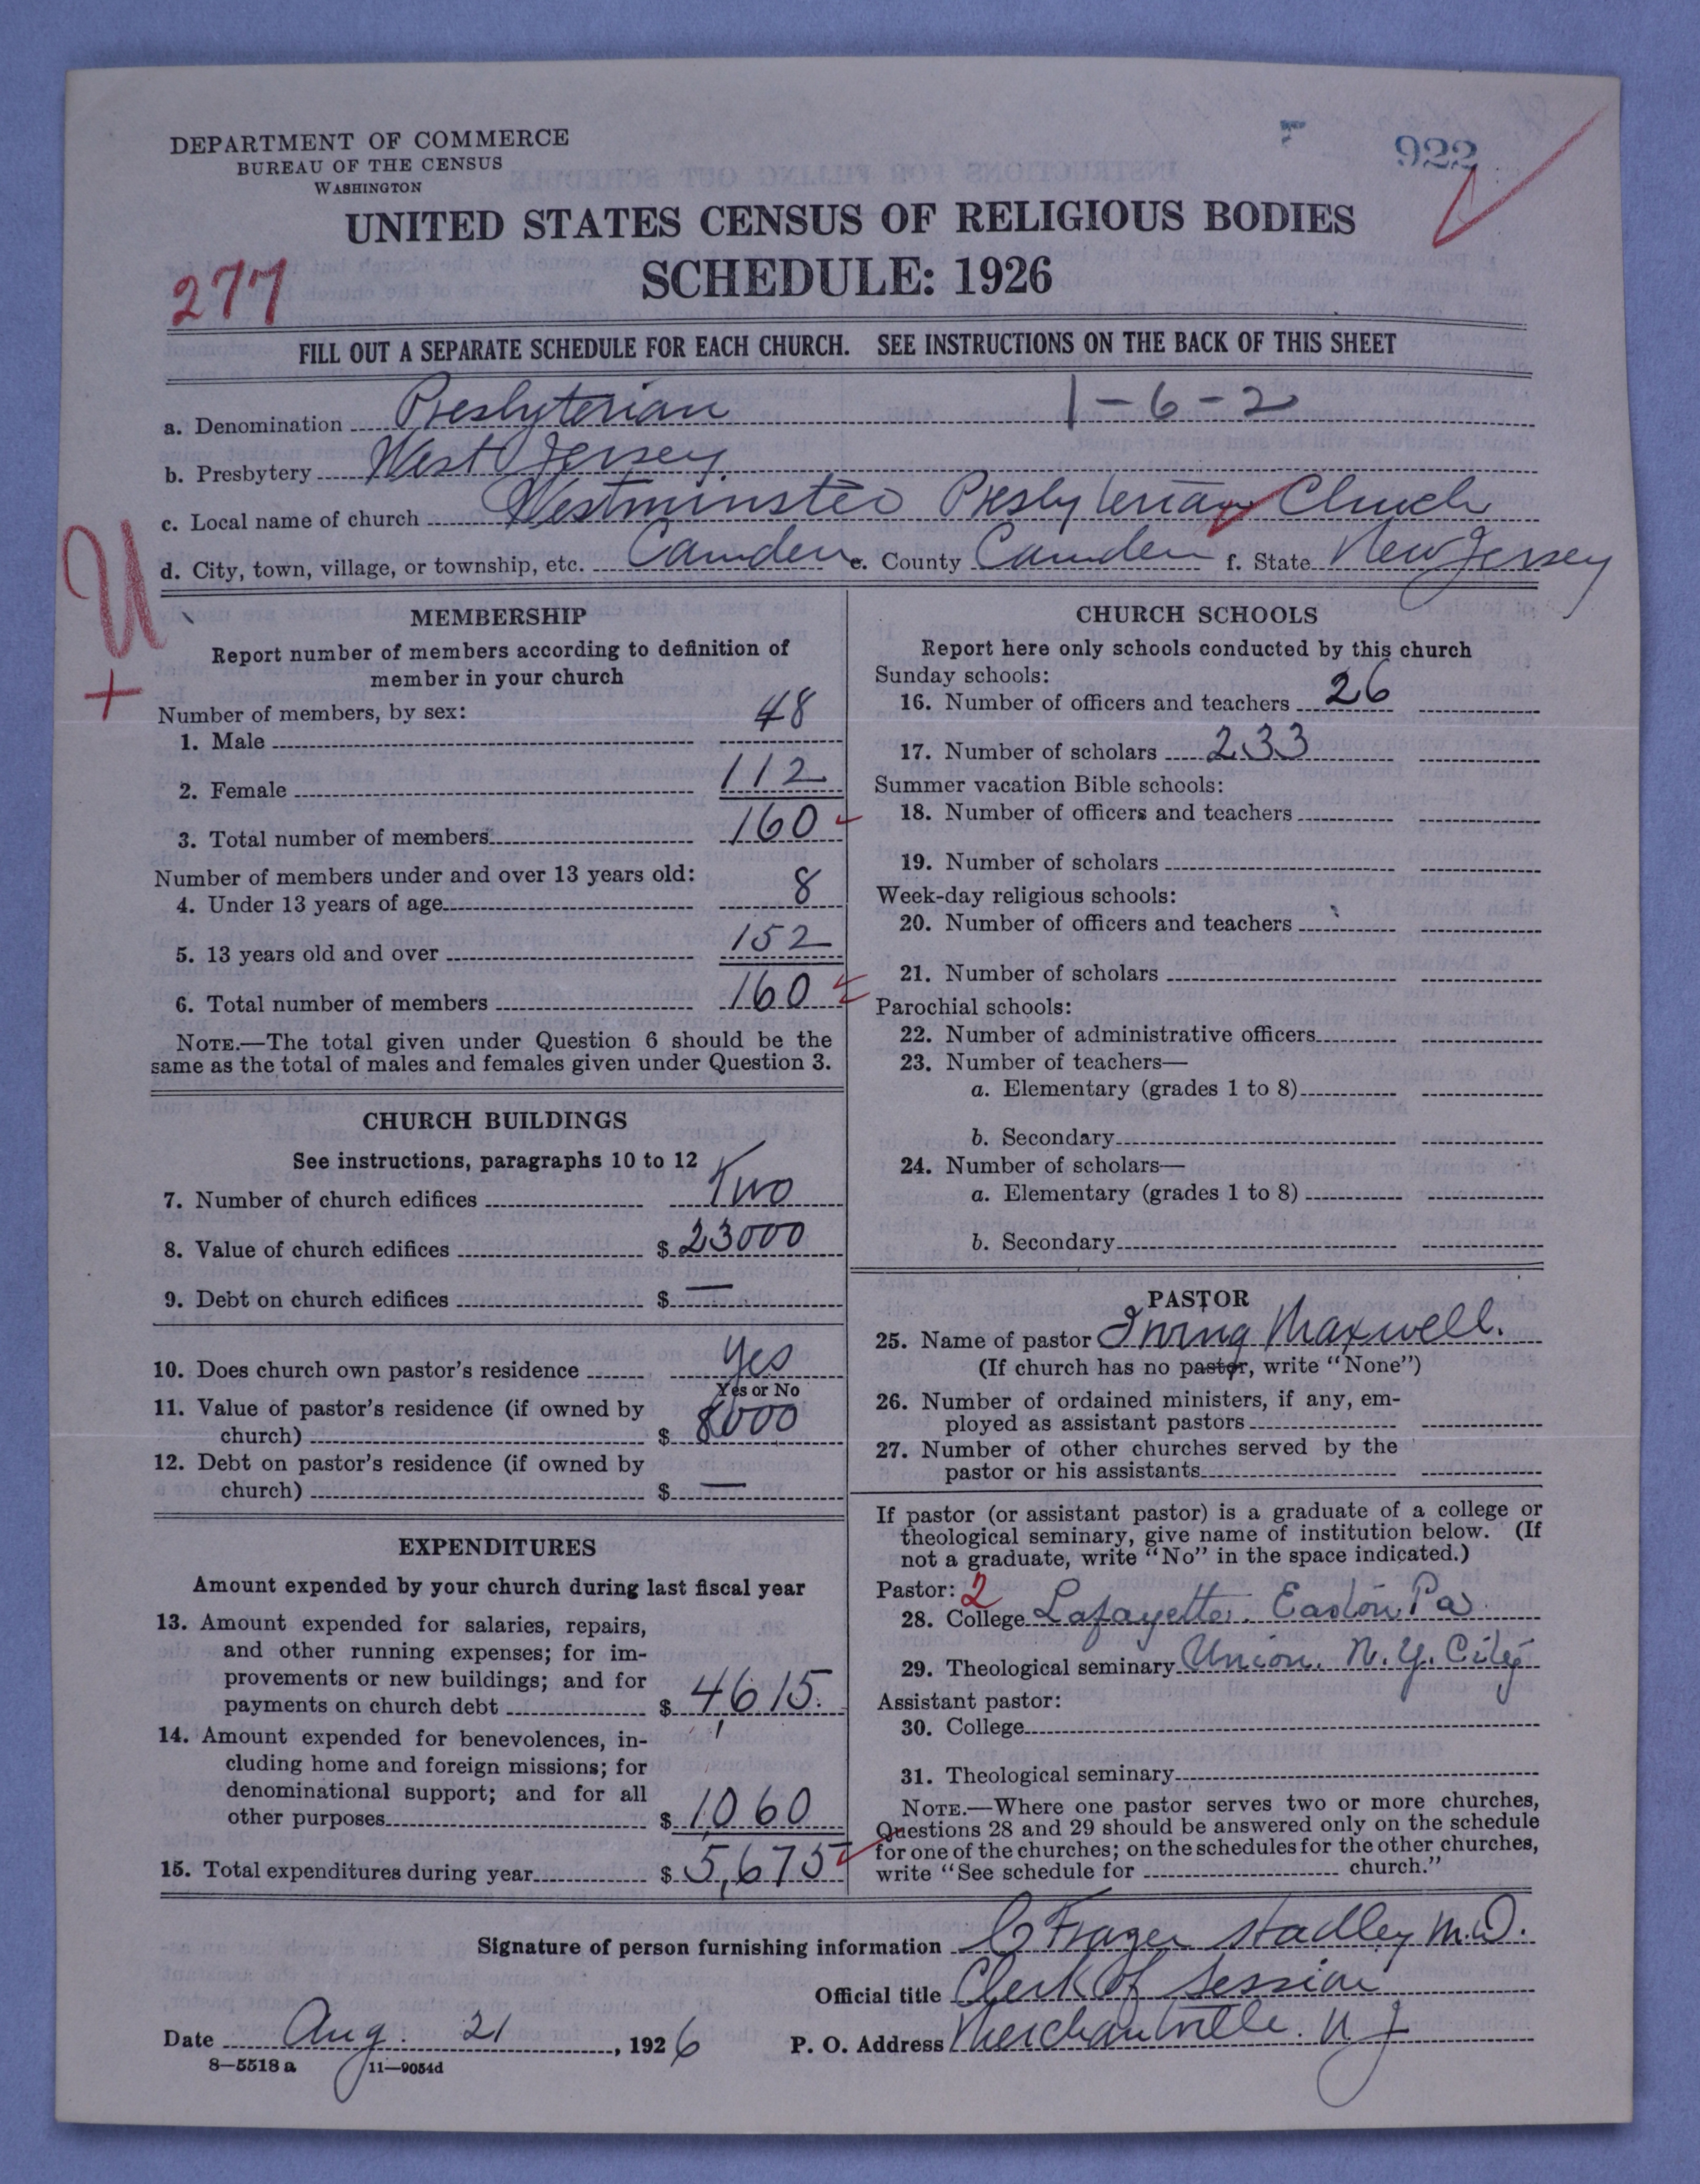 DEPARTMENT OF COMMERCE
BUREAU OF THE CENSUS
WASHINGTON
922
UNITED STATES CENSUS OF RELIGIOUS BODIES
277
SCHEDULE: 1926
FILL OUT A SEPARATE SCHEDULE FOR EACH CHURCH. SEE INSTRUCTIONS ON THE BACK OF THIS SHEET
a. Denomination Presbyterian 1-6-2
b. Presbytery West Jersey
c. Local name of church Westminster Presbyterian Church
d. City, town, village, or township, etc. Camden e. County Camden f. State New Jersey
U
+
MEMBERSHIP
Report number of members according to definition of
member in your church
Number of members, by sex:
1. Male 48
2. Female 112
3. Total number of members 160
Number of members under and over 13 years old:
4. Under 13 years of age 8
5. 13 years old and over 152
6. Total number of members 160
NOTE.—The total given under Question 6 should be the
same as the total of males and females given under Question 3.
CHURCH BUILDINGS
See instructions, paragraphs 10 to 12
7. Number of church edifices Two
8. Value of church edifices $ 23000
9. Debt on church edifices $ —
10. Does church own pastor's residence Yes
Yes or No
11. Value of pastor's residence (if owned by
church) $ 8000
12. Debt on pastor's residence (if owned by
church) $ —
EXPENDITURES
Amount expended by your church during last fiscal year
13. Amount expended for salaries, repairs,
and other running expenses; for im-
provements or new buildings; and for
payments on church debt $ 4,615.
14. Amount expended for benevolences, in-
cluding home and foreign missions; for
denominational support; and for all
other purposes $ 1,060
15. Total expenditures during year $ 5,675
CHURCH SCHOOLS
Report here only schools conducted by this church
Sunday schools:
16. Number of officers and teachers 26
17. Number of scholars 233
Summer vacation Bible schools:
18. Number of officers and teachers
19. Number of scholars
Week-day religious schools:
20. Number of officers and teachers
21. Number of scholars
Parochial schools:
22. Number of administrative officers
23. Number of teachers—
a. Elementary (grades 1 to 8)
b. Secondary
24. Number of scholars—
a. Elementary (grades 1 to 8)
b. Secondary
PASTOR
25. Name of pastor Irving Maxwell.
(If church has no pastor, write "None")
26. Number of ordained ministers, if any, em-
ployed as assistant pastors
27. Number of other churches served by the
pastor or his assistants
If pastor (or assistant pastor) is a graduate of a college or
theological seminary, give name of institution below. (If
not a graduate, write "No" in the space indicated.)
Pastor: 2
28. College Lafayette. Easton. Pa
29. Theological seminary Union. N. Y. City
Assistant pastor:
30. College
31. Theological seminary
NOTE.—Where one pastor serves two or more churches,
Questions 28 and 29 should be answered only on the schedule
for one of the churches; on the schedules for the other churches,
write "See schedule for church."
Signature of person furnishing information C Frazer Hadley M.D.
Official title Clerk of Session
Date Aug. 21, 1926 P. O. Address Merchantville. N J
8—5518 a 11—9054d